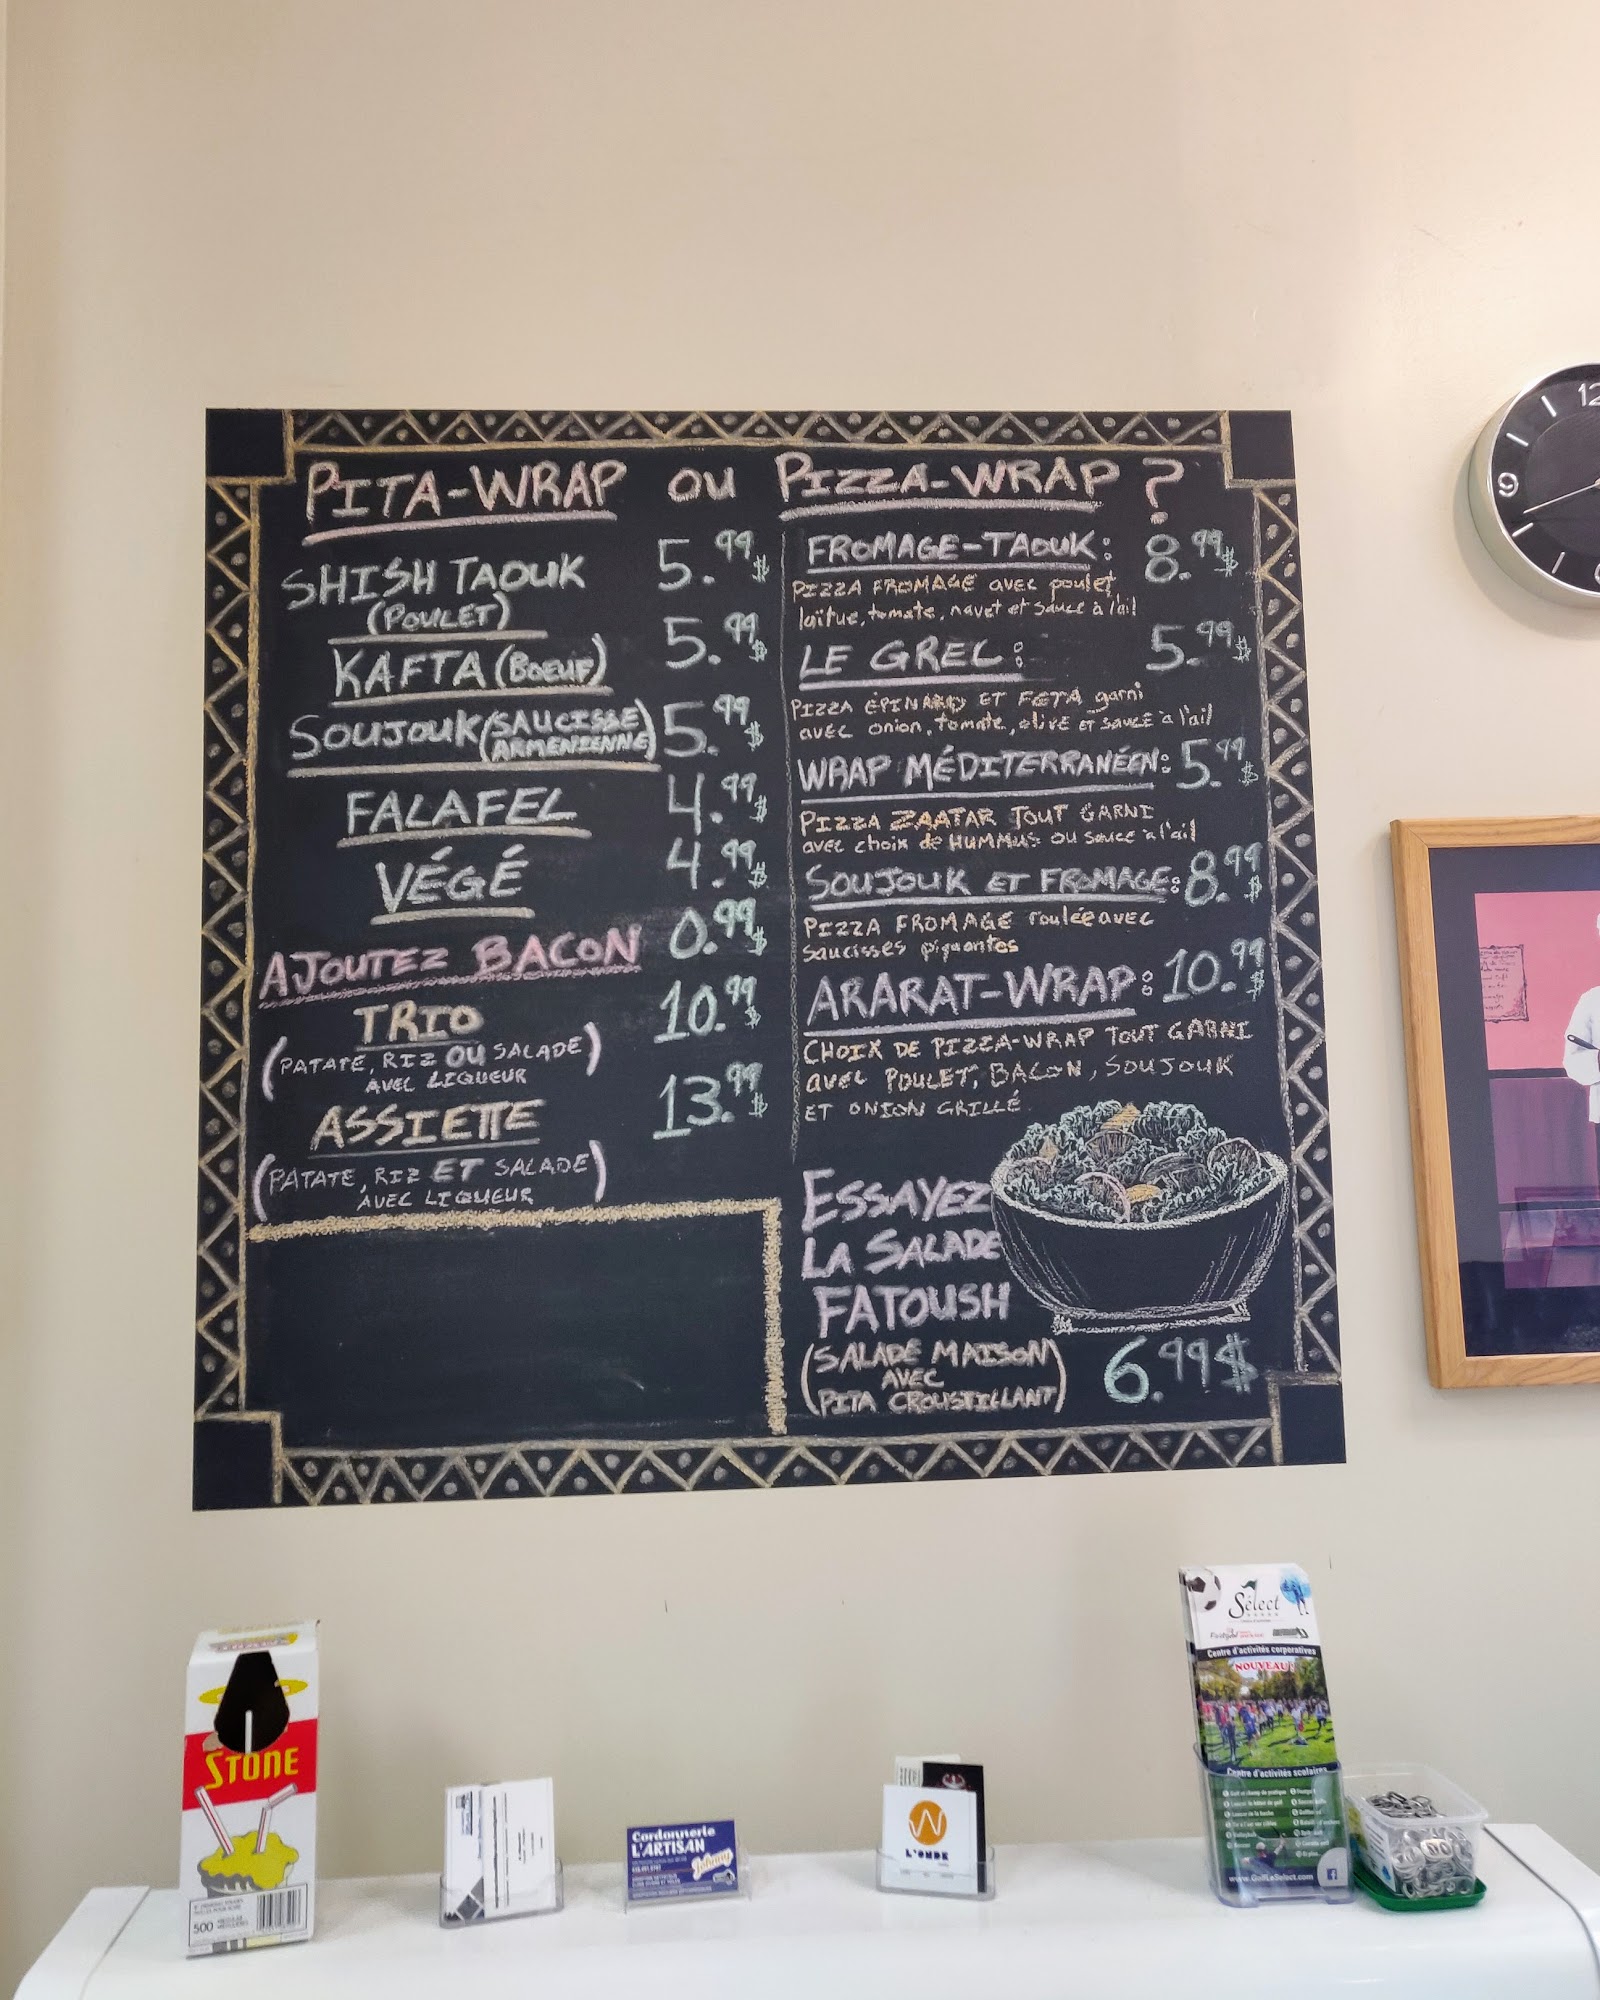 PITA-WRAP OU PIZZA-WRAP ?
SHISH TAOUK 5.99$
(POULET)
KAFTA (BOEUF) 5.99$
SOUJOUK (SAUCISSE ARMENIENNE) 5.99$
FALAFEL 4.99$
VÉGÉ 4.99$
AJOUTEZ BACON 0.99$
TRIO 10.99$
(PATATE, RIZ OU SALADE)
AVEC LIQUEUR
ASSIETTE 13.99$
(PATATE, RIZ ET SALADE)
AVEC LIQUEUR
FROMAGE-TAOUK: 8.99$
PIZZA FROMAGE avec poulet
laitue, tomate, navet et sauce à l'ail
LE GREC: 5.99$
PIZZA ÉPINARD ET FETA garni
avec onion, tomate, olive et sauce à l'ail
WRAP MÉDITERRANÉEN: 5.99$
PIZZA ZAATAR TOUT GARNI
avec choix de HUMMUS ou sauce à l'ail
SOUJOUK ET FROMAGE: 8.99$
PIZZA FROMAGE roulée avec
saucisses piquantes
ARARAT-WRAP: 10.99$
CHOIX DE PIZZA-WRAP TOUT GARNI
avec POULET, BACON, SOUJOUK
ET ONION GRILLÉ
ESSAYEZ
LA SALADE
FATOUSH
(SALADE MAISON
AVEC
PITA CROUSTILLANT) 6.99$
12
9
STONE
500
Cordonnerie
L'ARTISAN
Johnny
L'ONDE
Sélect
Centre d'activités corporatives
NOUVEAU!
Centre d'activités scolaires
www.GolfLeSelect.com